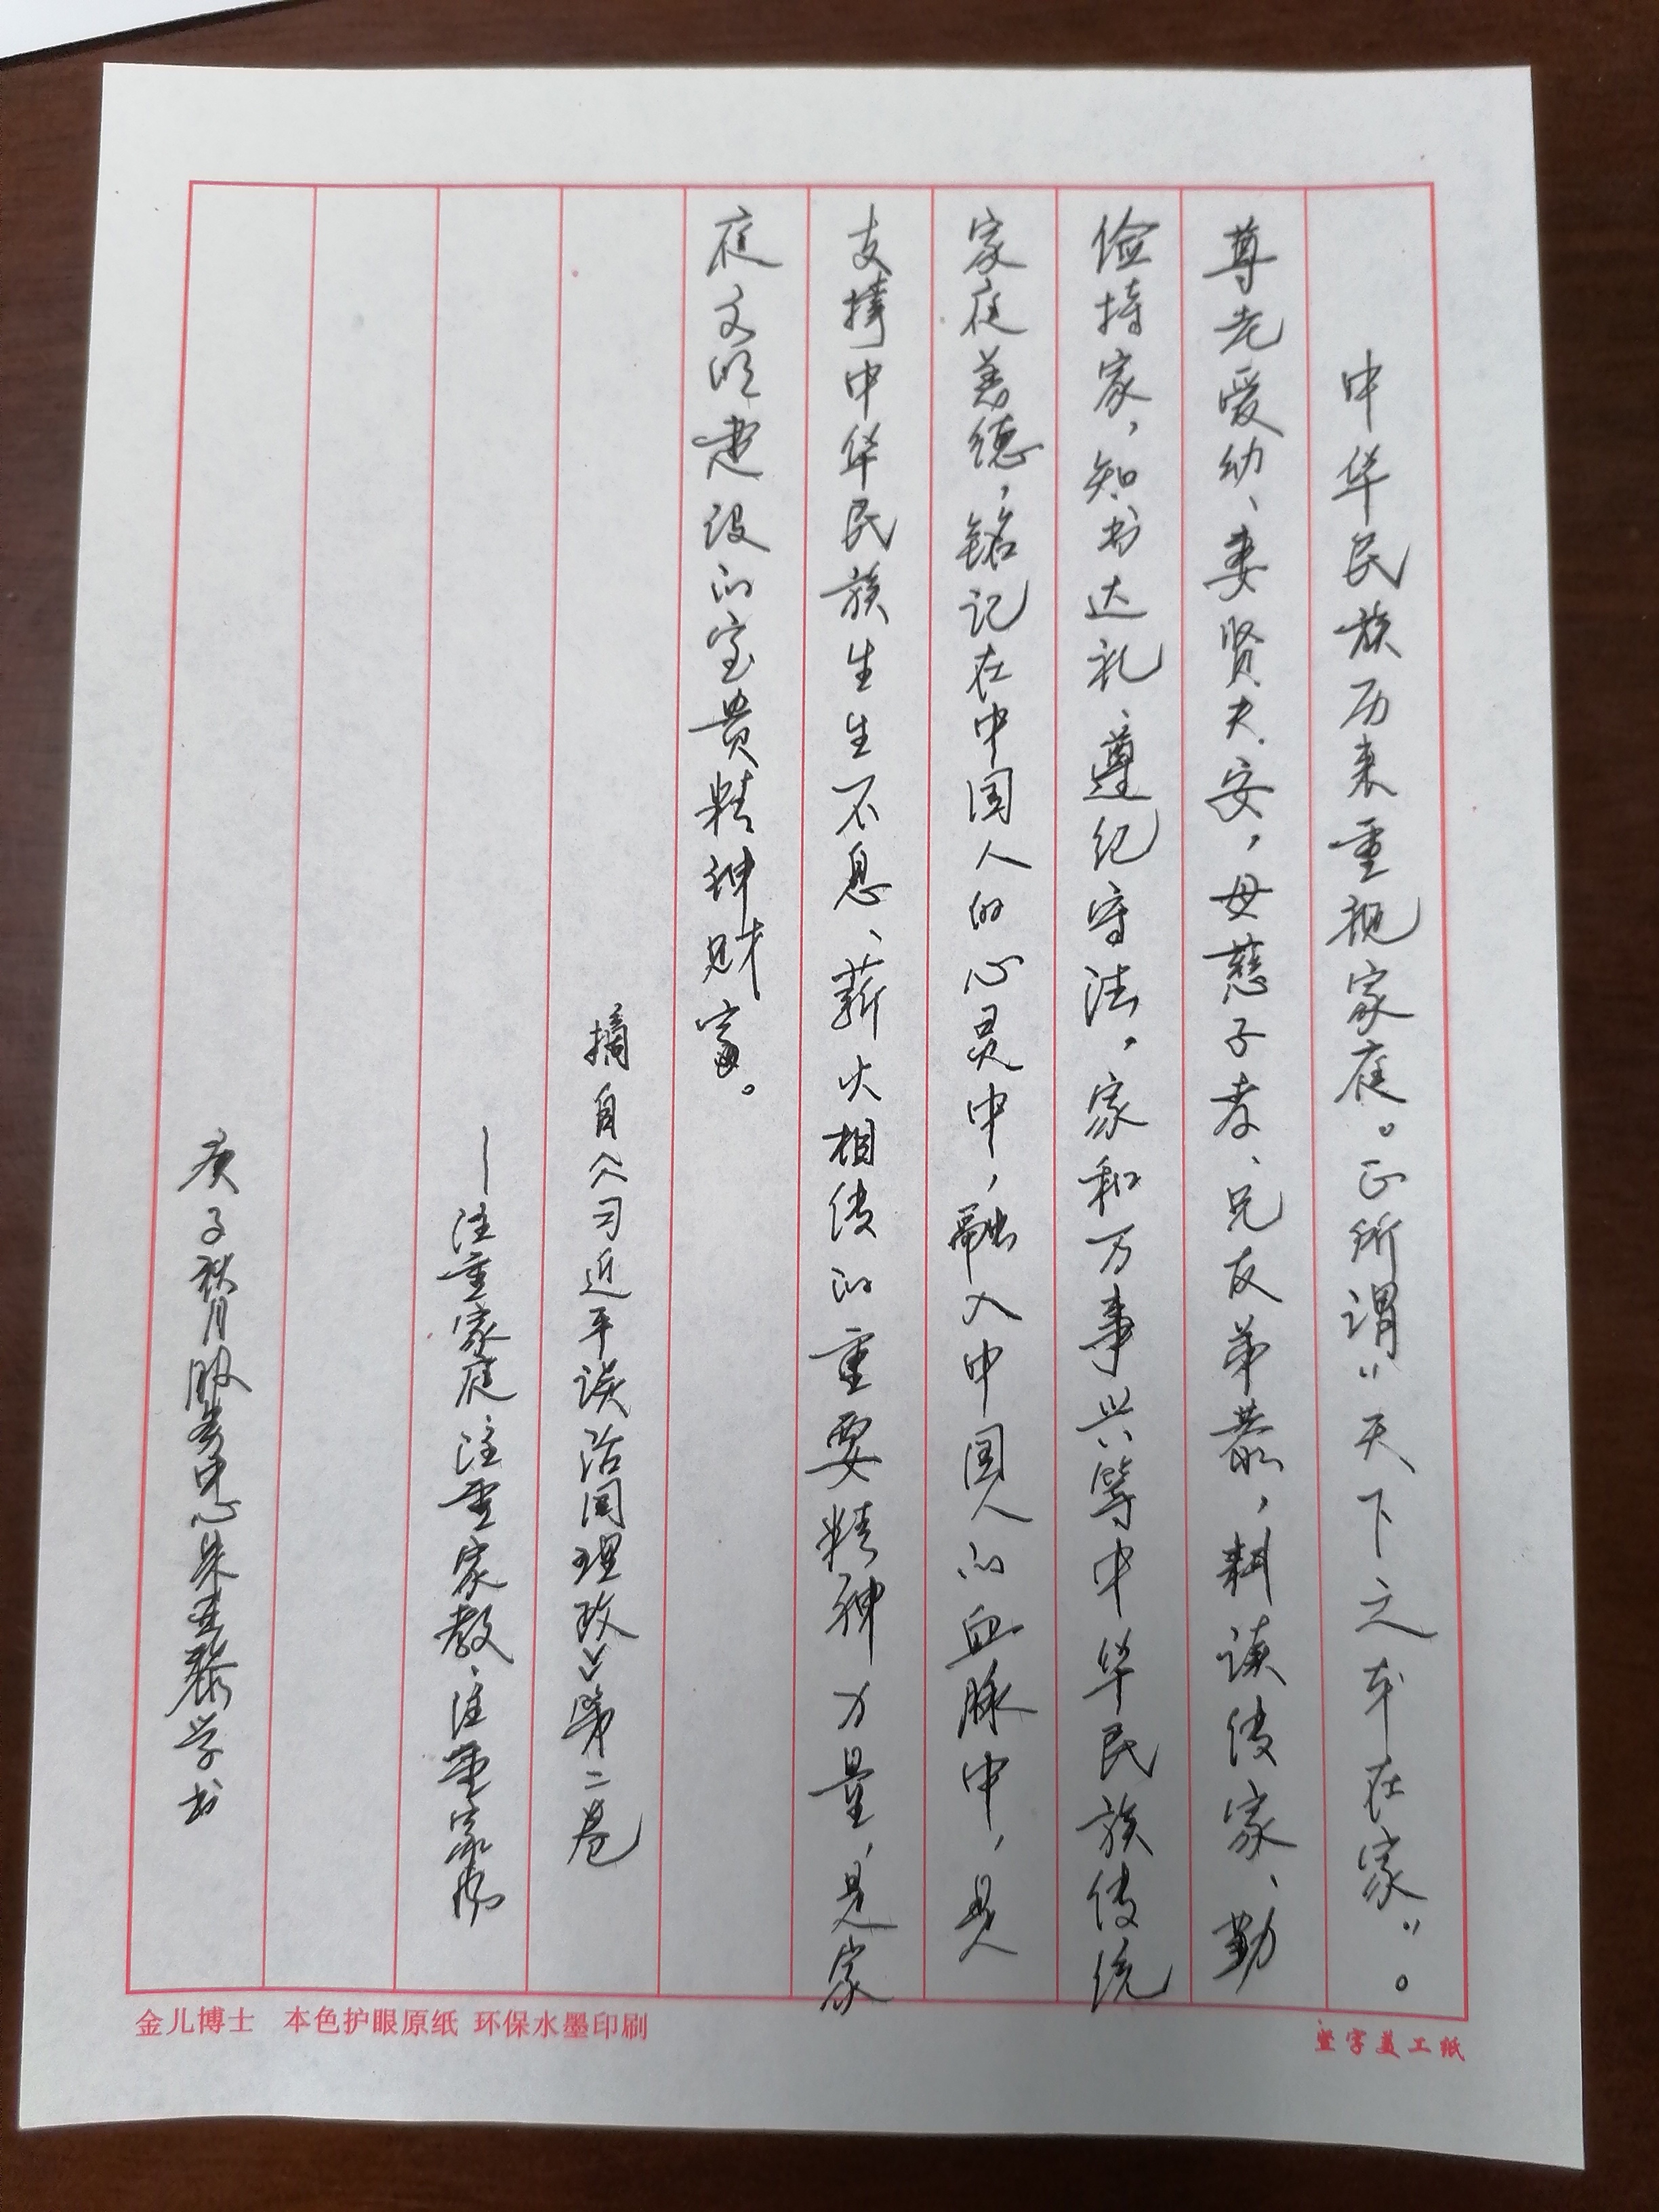 中华民族历来重视家庭。正所谓“天下之本在家”。
尊老爱幼、妻贤夫安，母慈子孝、兄友弟恭，耕读传家、勤
俭持家，知书达礼、遵纪守法，家和万事兴等中华民族传统
家庭美德，铭记在中国人的心灵中，融入中国人的血脉中，是
支撑中华民族生生不息、薪火相传的重要精神力量，是家
庭文明建设的宝贵精神财富。
摘自《习近平谈治国理政》第二卷
—注重家庭 注重家教、注重家风
庚子秋月服务中心朱 学书
金儿博士 本色护眼原纸 环保水墨印刷
竖字美工纸